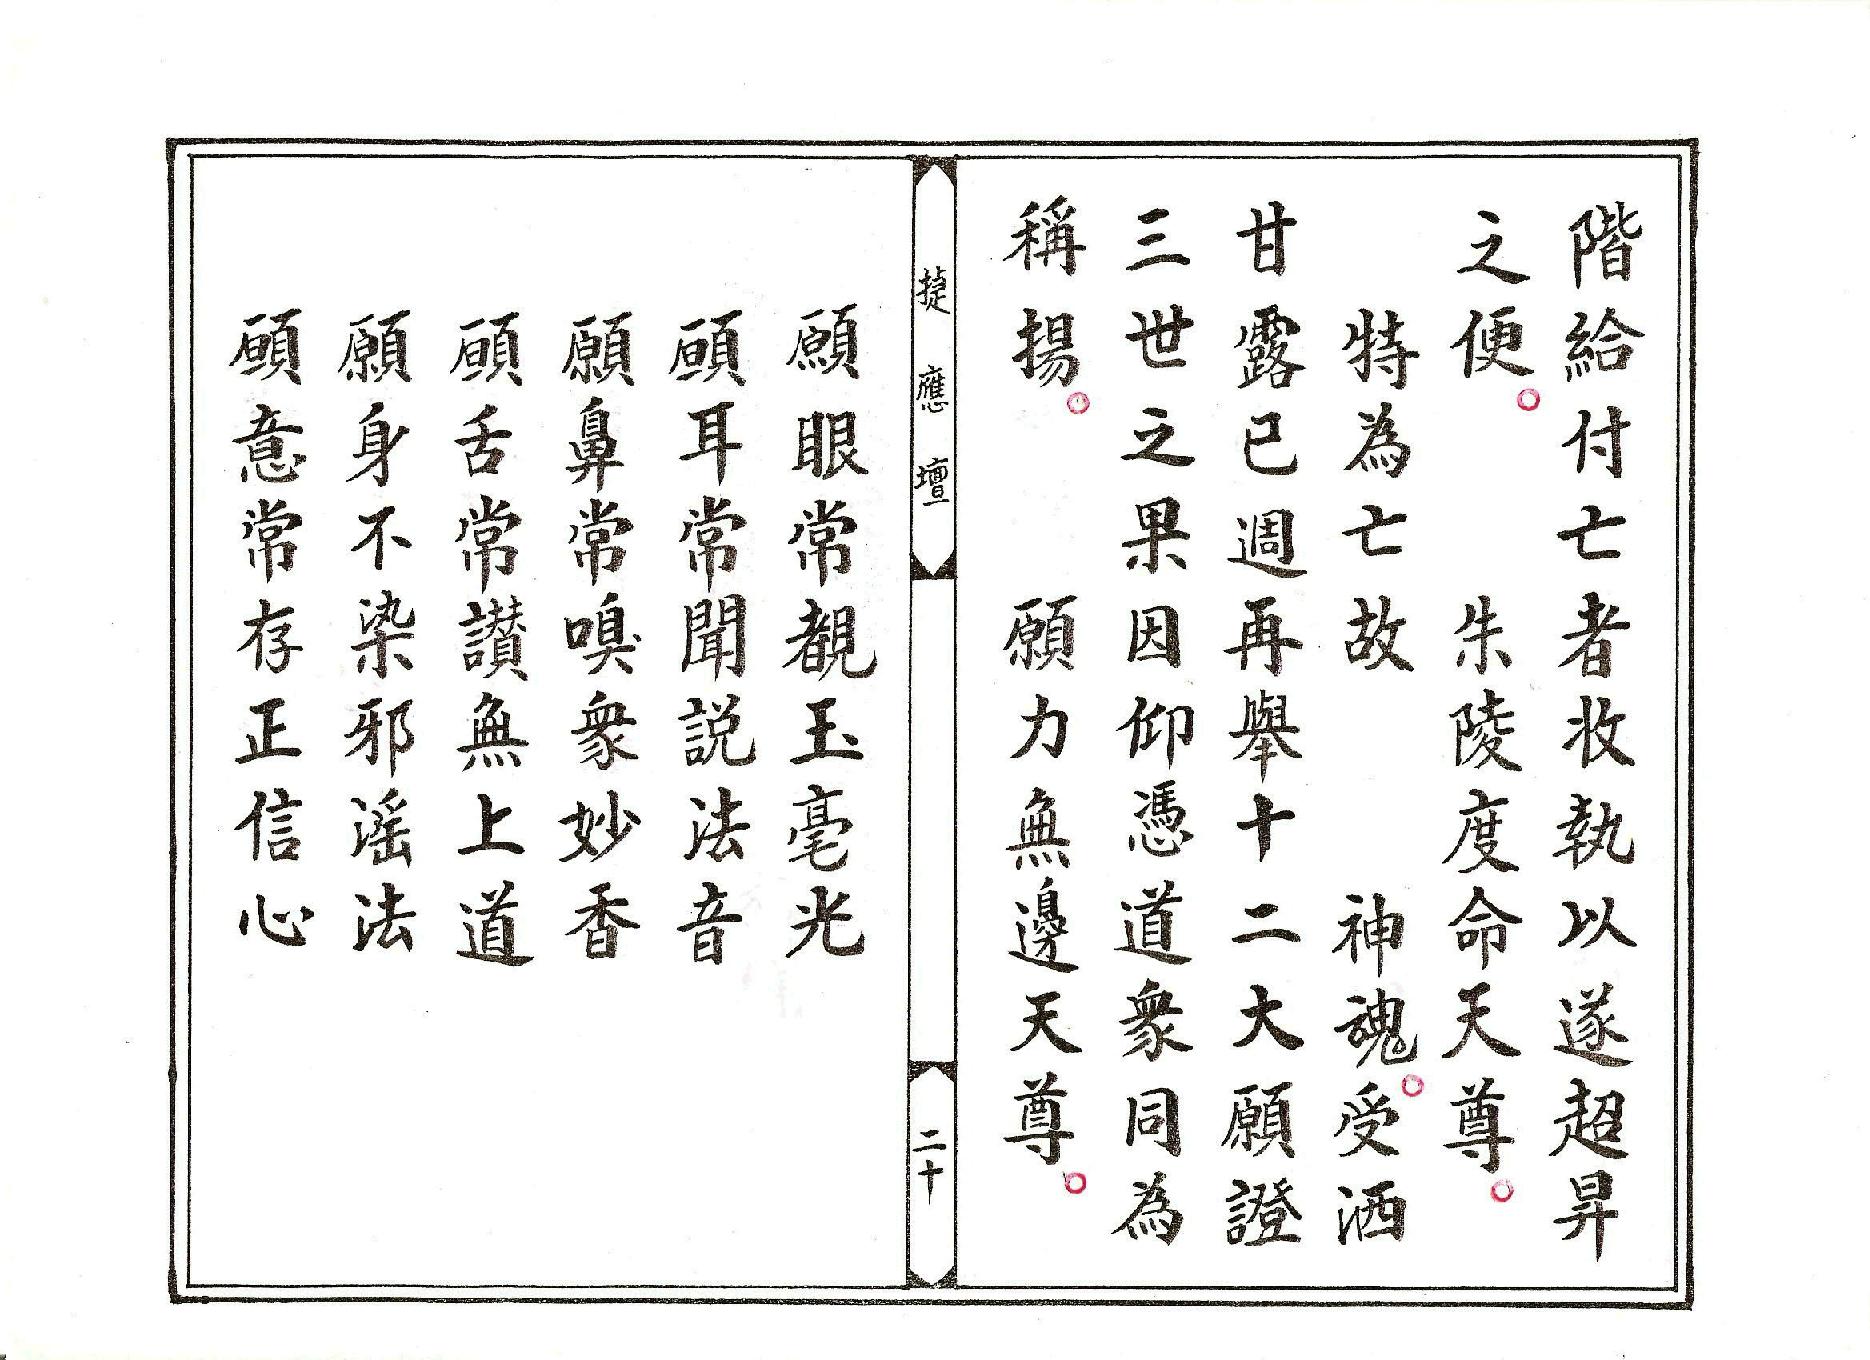 階給付亡者收執以遂超昇
之便。 朱陵度命天尊。
特為亡故 神魂。受洒
甘露已週再舉十二大願證
三世之果因仰憑道衆同為
稱揚。 願力無邊天尊。
捷應壇
二十
願眼常覩玉毫光
願耳常聞説法音
願鼻常嗅衆妙香
願舌常讃無上道
願身不染邪滛法
願意常存正信心